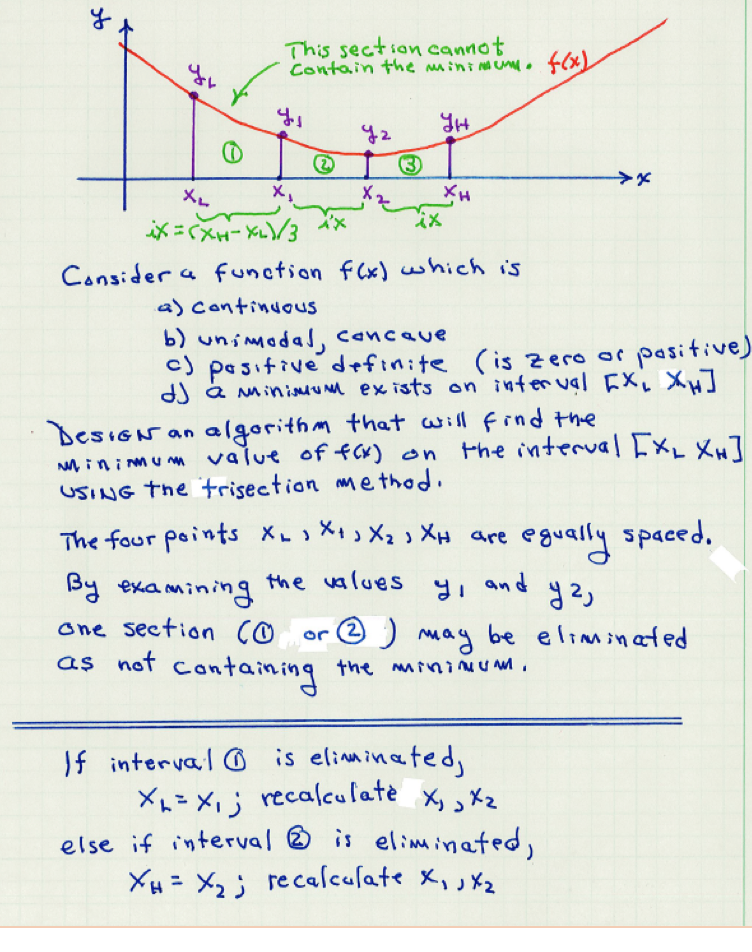 y
This section cannot
contain the minimum.
f(x)
yL
y1
y2
yH
①
②
③
x
xL
x1
x2
xH
ix = (xH-xL)/3
ix
ix
Consider a function f(x) which is
a) continuous
b) unimodal, concave
c) positive definite (is zero or positive)
d) a minimum exists on interval [xL xH]
DESIGN an algorithm that will find the
minimum value of f(x) on the interval [xL xH]
USING the trisection method.
The four points xL, x1, x2, xH are equally spaced.
By examining the values y1 and y2,
one section (① or ②) may be eliminated
as not containing the minimum.
If interval ① is eliminated,
xL = x1; recalculate x1, x2
else if interval ② is eliminated,
xH = x2; recalculate x1, x2